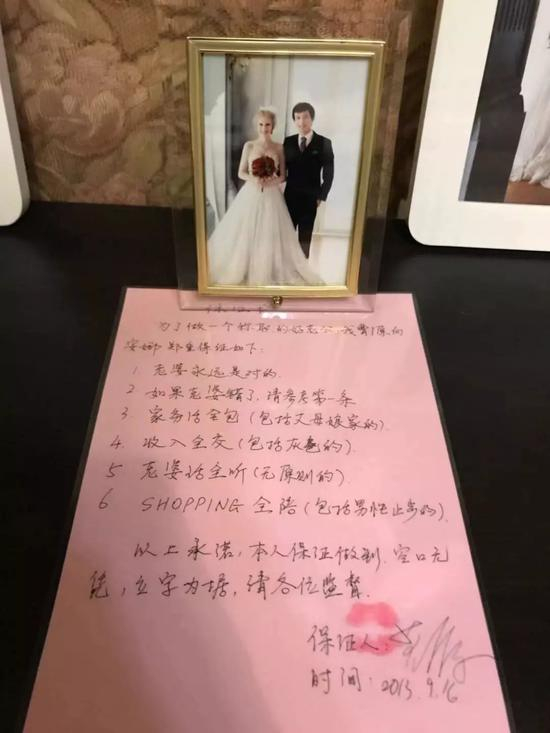 保证书
为了做一个称职的好老公,我
安娜 郑重保证如下:
1 老婆永远是对的.
2 如果老婆错了,请参考第一条
3 家务活全包(包括丈母娘家的).
4. 收入全交(包括灰色的)
5 老婆话全听(无原则的)
6 SHOPPING 全陪(包括男性止步的).
以上承诺,本人保证做到.空口无
凭,立字为据,请各位监督.
保证人:
时间:2013.9.16